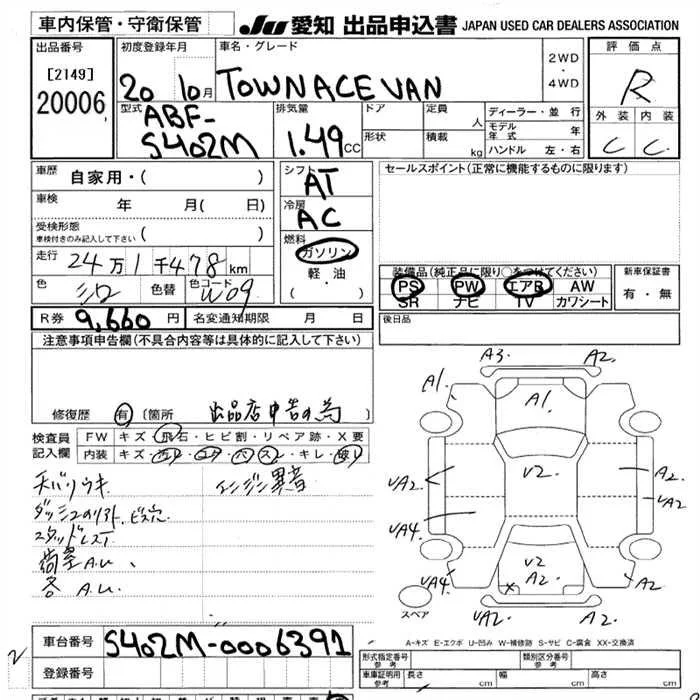 車内保管・守衛保管
JU 愛知 出品申込書 JAPAN USED CAR DEALERS ASSOCIATION
出品番号
[2149]
20006
初度登録年月
20 10月
車名・グレード
TOWNACE VAN
2WD
・
4WD
評価点
R
外装 内装
C C
型式
ABF-
S402M
排気量
1.49CC
ドア
定員
人
形状
積載
kg
ディーラー・並行
モデル年式 年
ハンドル 左・右
車歴
自家用・( )
車検
年 月( 日)
受検形態
車検付きのみ記入して下さい ( )
走行
24万1千478km
色
シロ
色替
色コード
W09
シフト
AT
冷房
AC
燃料
ガソリン
軽・油
( ・ )
セールスポイント(正常に機能するものに限ります)
装備品(純正品に限り○をつけてください)
PS PW エアB AW
SR ナビ TV カワシート
新車保証書
有・無
R券 9,660円
名変通知期限 月 日
後日品
注意事項申告欄(不具合内容等は具体的に記入して下さい)
修復歴 有 〔箇所 出品店申告の為 〕
検査員
記入欄
FW キズ・飛石・ヒビ割・リペア跡・X要
内装 キズ・汚レ・コゲ・ベス・スレ・キレ・破レ
エンジン異音
ダッシュのリフト、ビス穴
スタッドレスT
荷室A.U、
各A.U
A3 A2
A1 A1
V2
UA2 A2
UA2
UA4
V2
UA4 A2 A2
X
UA2 A2
スペア
2
車台番号
S402M-0006391
登録番号
A-キズ E-エクボ U-凹み W-補修跡 S-サビ C-腐食 XX-交換済
形式指定番号
参考
類別区分番号
参考
車庫証明用
参考
長さ cm 幅 cm 高さ cm